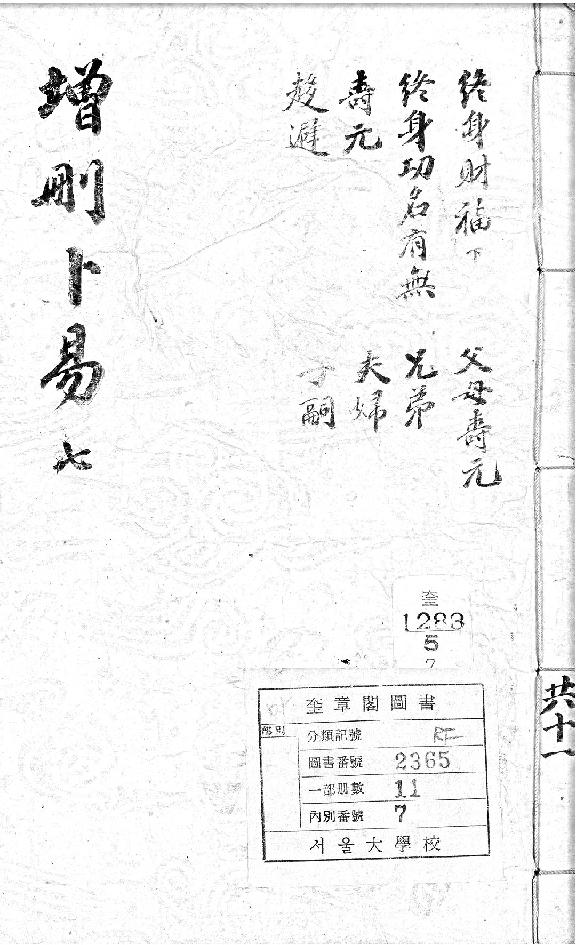 終身財福下
父母壽元
終身功名有無
兄弟
壽元
夫婦
趍避
子嗣
增刪卜易 七
共十一
奎
1283
5
7
奎章閣圖書
部別
分類記號
圖書番號 2365
一部册數 11
內別番號 7
서울大學校